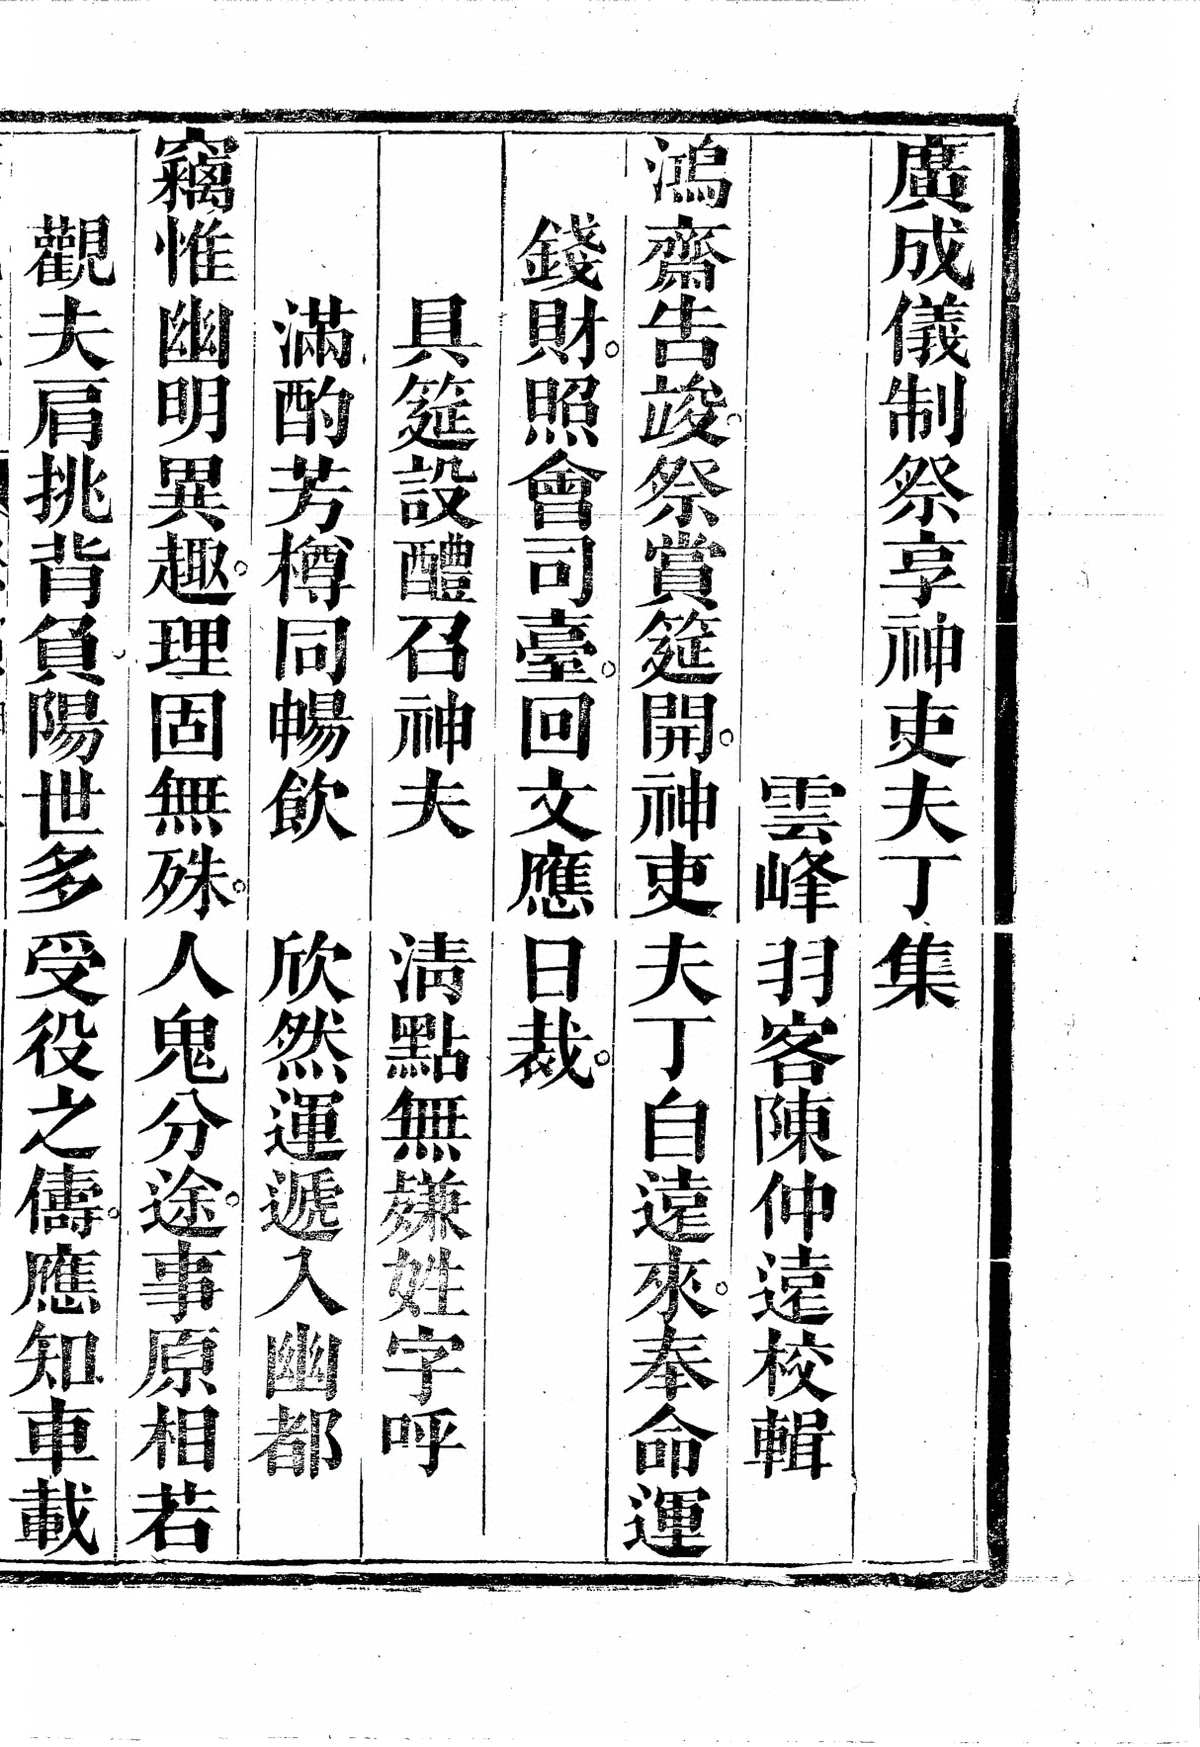 廣成儀制祭享神吏夫丁集
雲峰羽客陳仲遠校輯
鴻齋告竣。祭賞筵開。神吏夫丁自遠來。奉命運
錢財。照會司臺。回文應日裁。
具筵設醴召神夫 清點無嫌姓字呼
滿酌芳樽同暢飲 欣然運遞入幽都
竊惟幽明異趣。理固無殊。人鬼分途。事原相若
觀夫肩挑背負。陽世多受役之儔。應知車載